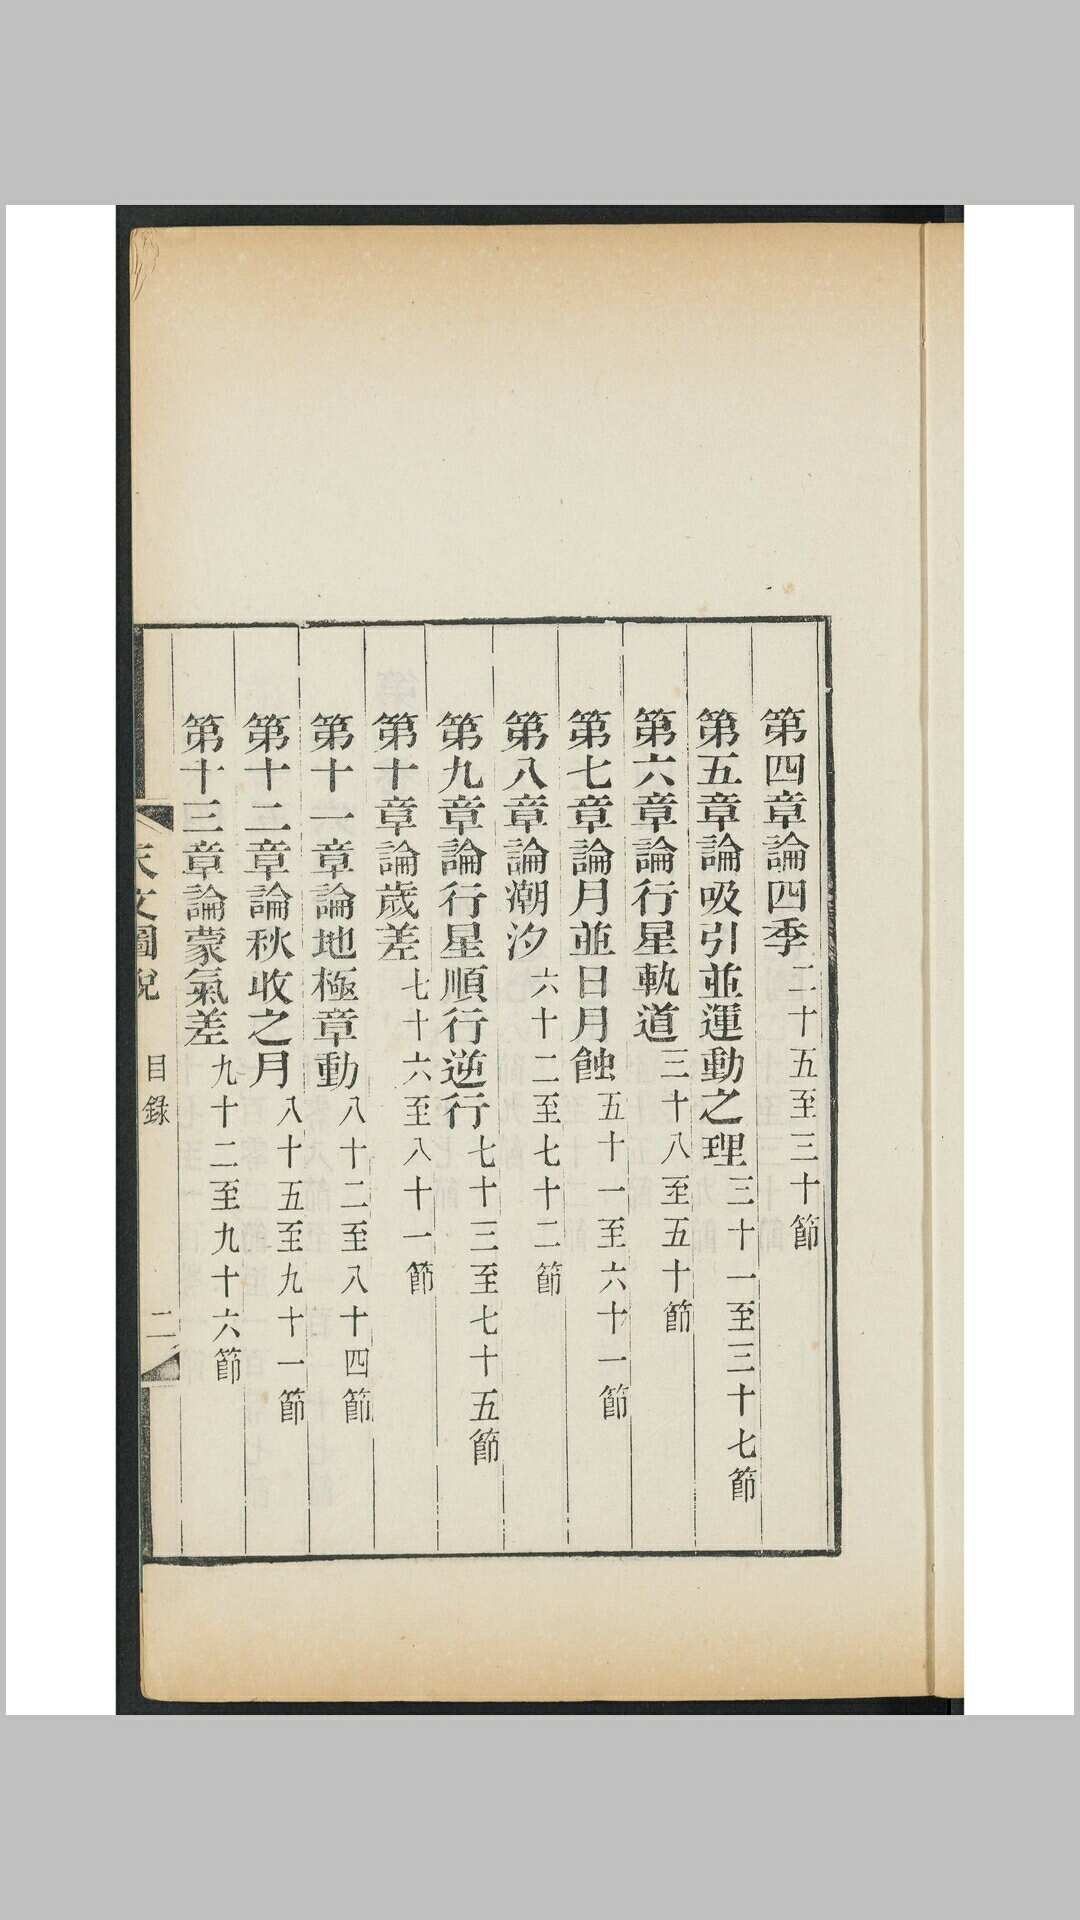 第四章論四季二十五至三十節
第五章論吸引並運動之理三十一至三十七節
第六章論行星軌道三十八至五十節
第七章論月並日月蝕五十一至六十一節
第八章論潮汐六十二至七十二節
第九章論行星順行逆行七十三至七十五節
第十章論歲差七十六至八十一節
第十一章論地極章動八十二至八十四節
第十二章論秋收之月八十五至九十一節
第十三章論蒙氣差九十二至九十六節
天文圖說 目錄 二